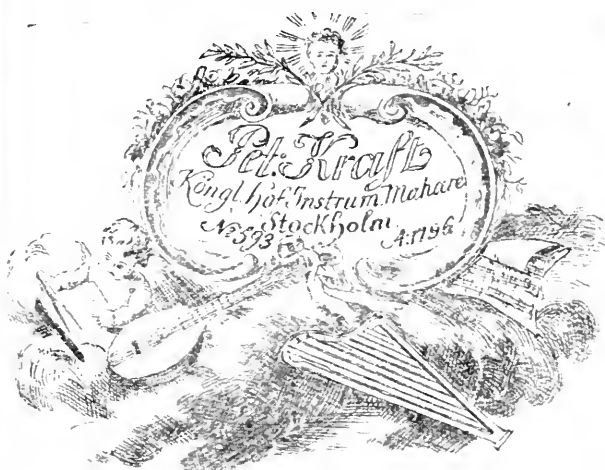 Pet: Kraft
Kongl. hof. Instrum. Makare
Stockholm
No 593 A. 1796